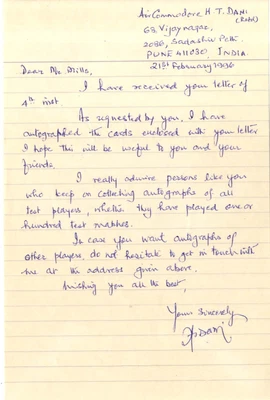 Air Commodore H. T. DANI
(Retd)
68 Vijaynagar,
2086, Sadashiv Peth.
PUNE 411030 INDIA.
21st February 1996
Dear Mr. Mills,
I have received your letter of
4th inst
As requested by you, I have
autographed the cards enclosed with your letter
I hope this will be useful to you and your
friends.
I really admire persons like you
who keep on collecting autographs of all
test players, whether they have played one or
hundred test matches.
In case you want autographs of
other players, do not hesitate to get in touch with
me at the address given above.
Wishing you all the best,
Yours Sincerely
HTDani